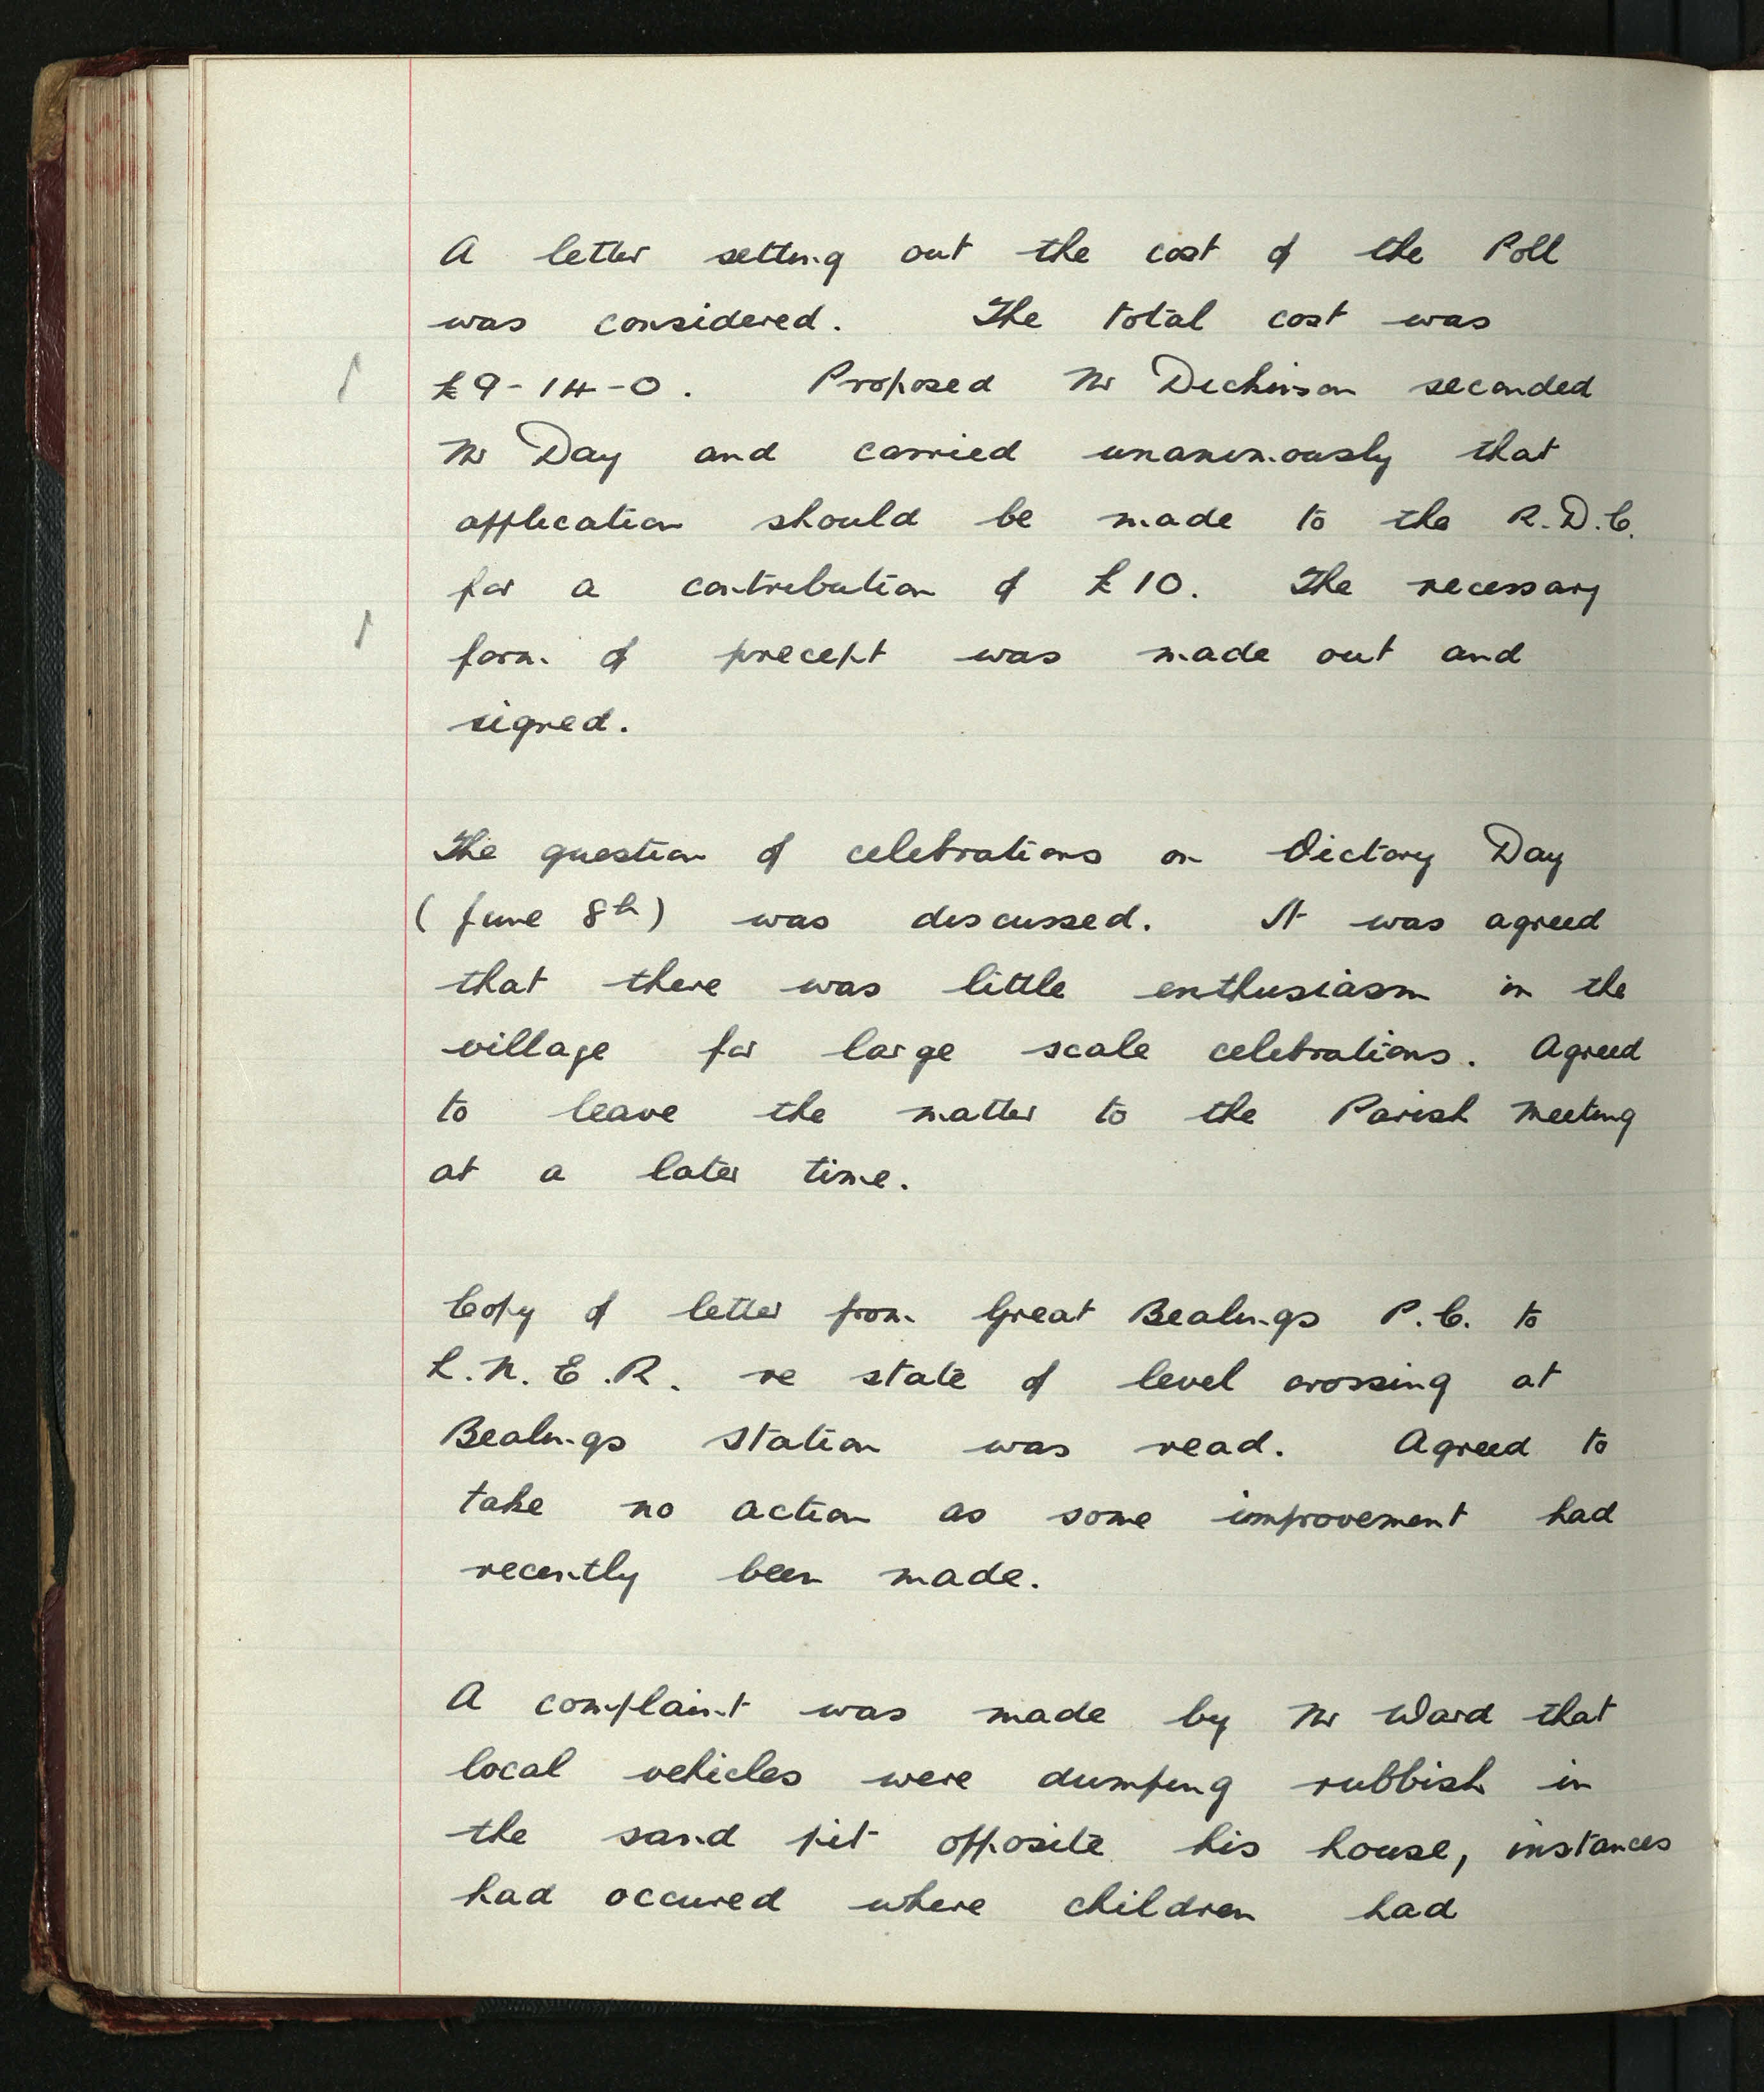 A letter setting out the cost of the Poll
was considered. The total cost was
£9-14-0. Proposed Mr Dickinson seconded
Mr Day and carried unanimously that
application should be made to the R.D.C.
for a contribution of £10. The necessary
form of precept was made out and
signed.
The question of celebrations on Victory Day
(June 8th) was discussed. It was agreed
that there was little enthusiasm in the
village for large scale celebrations. Agreed
to leave the matter to the Parish Meeting
at a later time.
Copy of letter from Great Bealings P.C. to
L.N.E.R. re state of level crossing at
Bealings Station was read. Agreed to
take no action as some improvement had
recently been made.
A complaint was made by Mr Ward that
local vehicles were dumping rubbish in
the sand pit opposite his house, instances
had occured where children had